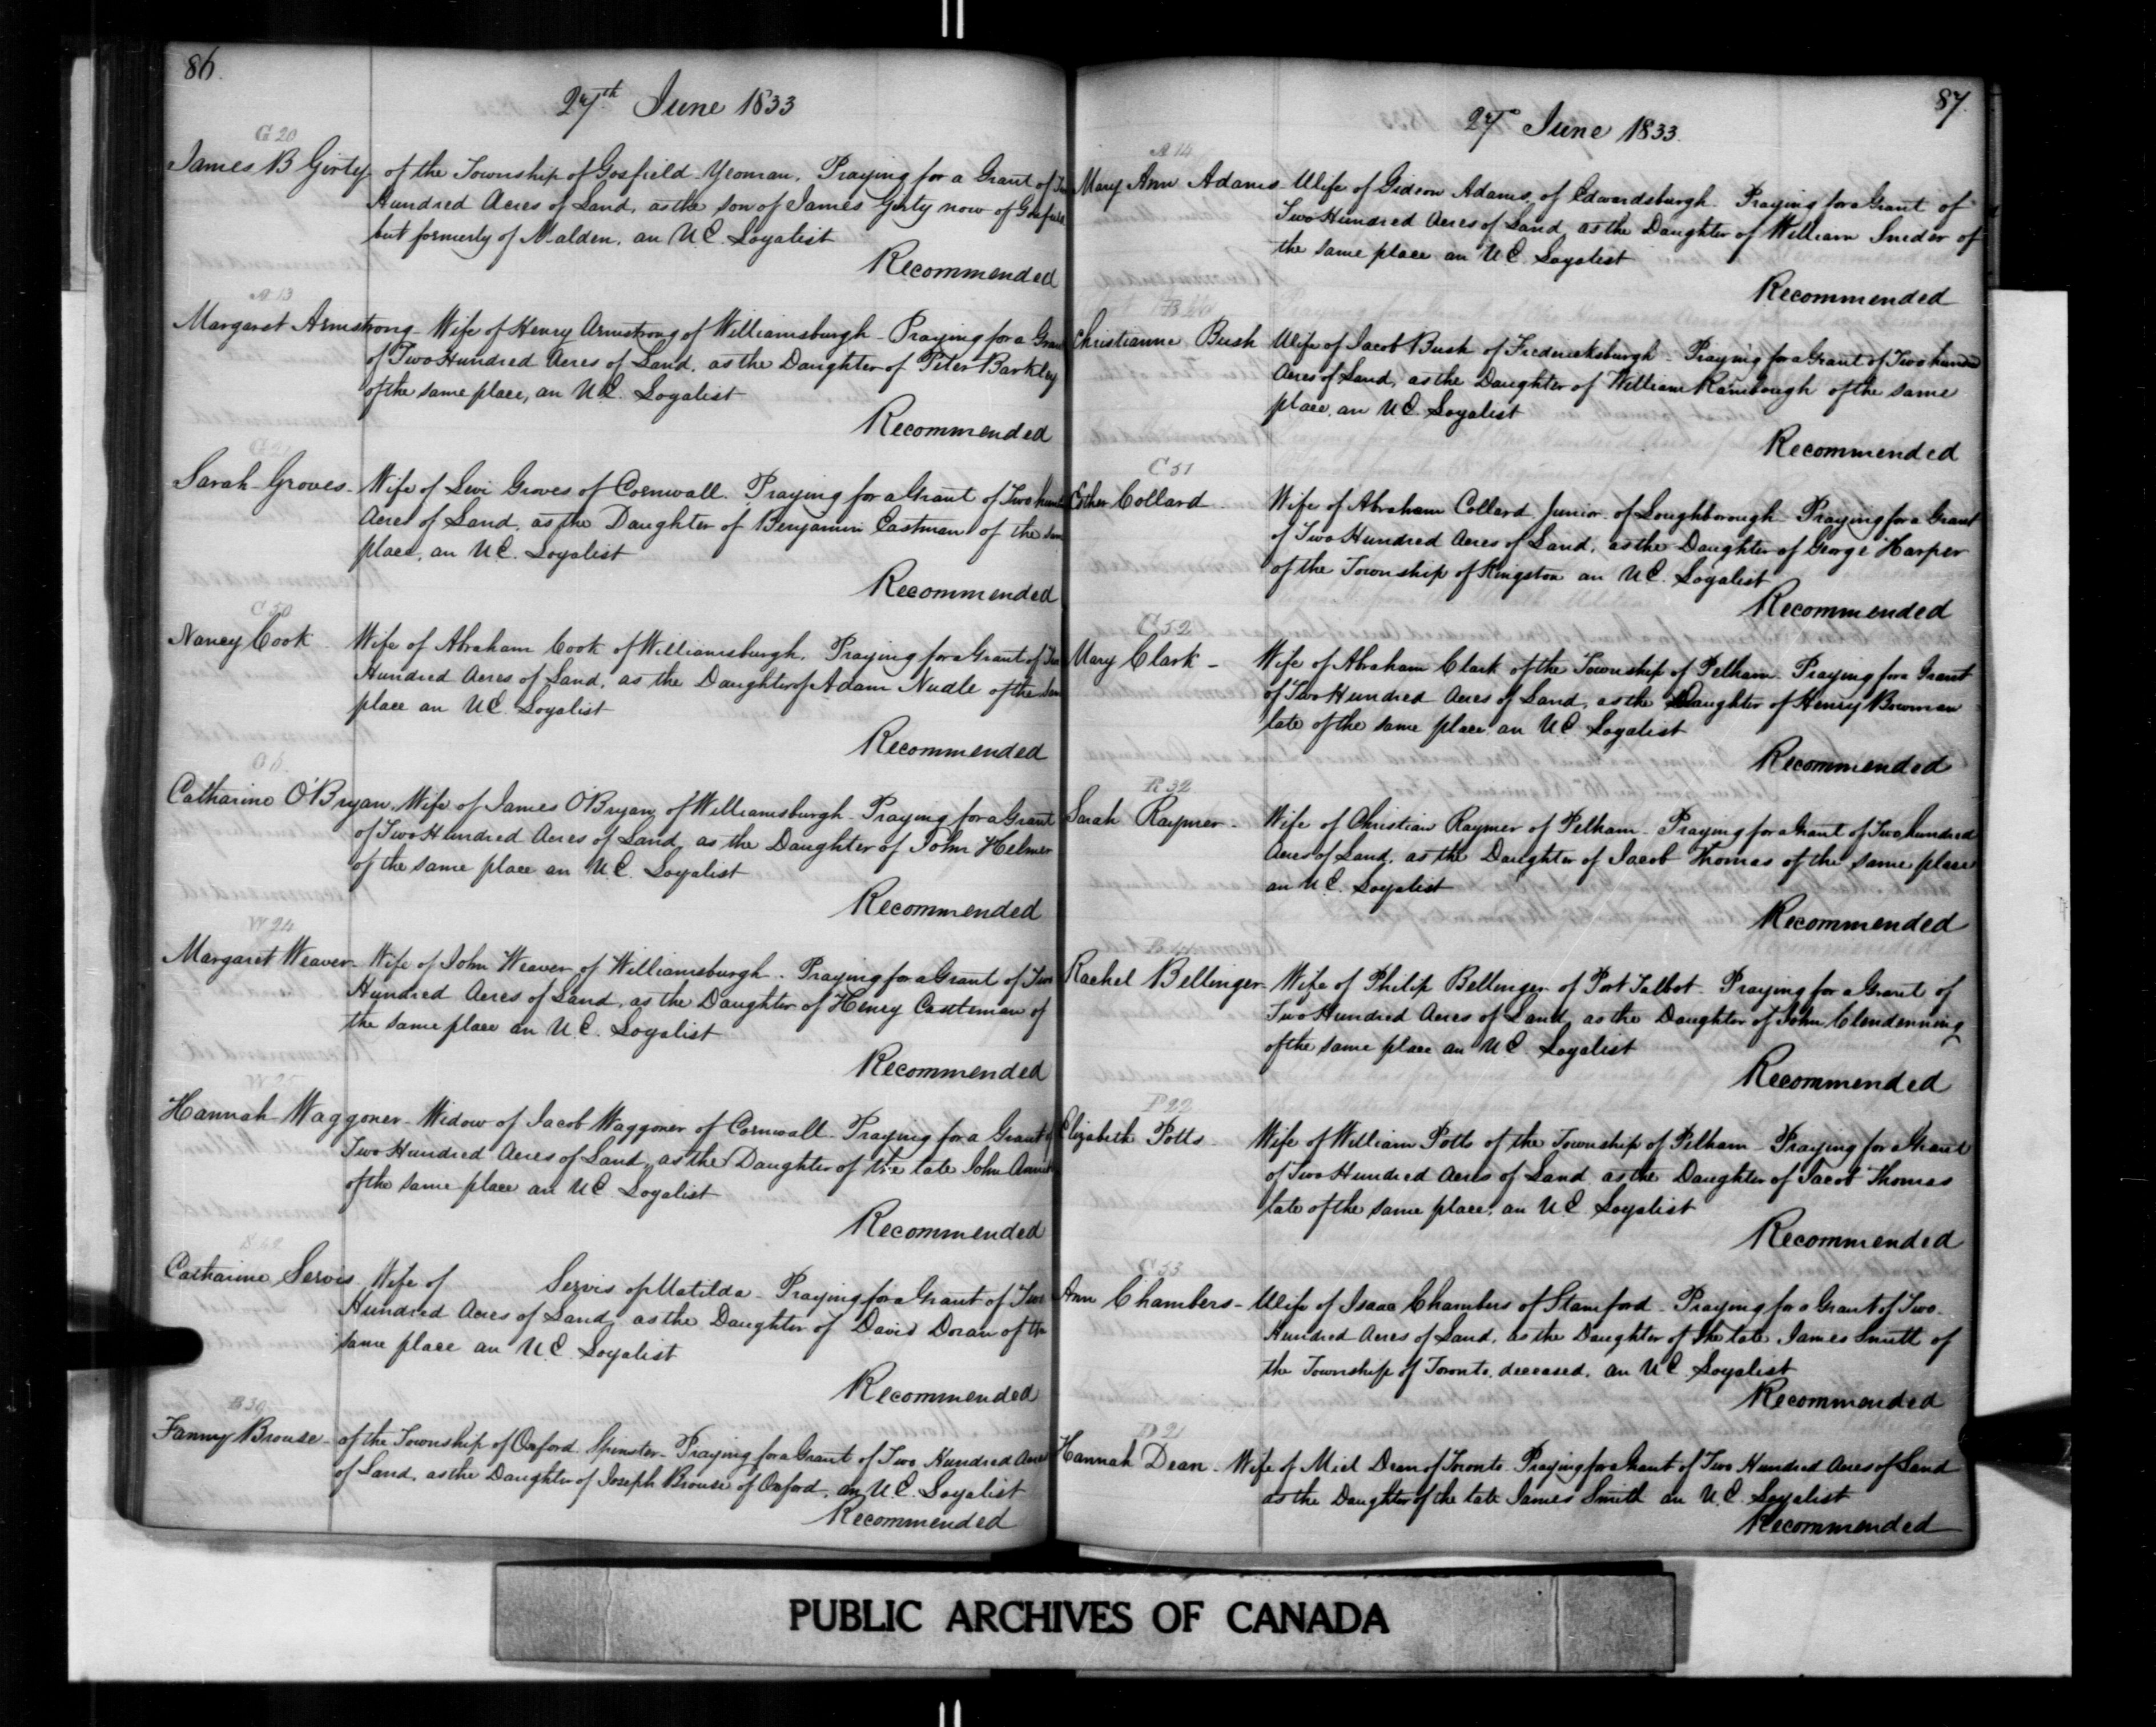 86.
27th June 1833
G 20
James B Girty of the Township of Gosfield Yeoman. Praying for a Grant of
Hundred Acres of Land, as the son of James Girty now of Gosfield
but formerly of Malden, an U.E. Loyalist
Recommended
A 13
Margaret Armstrong Wife of Henry Armstrong of Williamsburgh - Praying for a Grant
of Two Hundred Acres of Land, as the Daughter of Peter Barkley
of the same place, an U.E. Loyalist
Recommended
G 21
Sarah Groves - Wife of Levi Groves of Cornwall. Praying for a Grant of Two
Acres of Land, as the Daughter of Benjamin Eastman of the
place, an U.E. Loyalist
Recommended
C 50
Nancy Cook Wife of Abraham Cook of Williamsburgh. Praying for a Grant of
Hundred Acres of Land, as the Daughter of Adam Nudle of the
place an U.E. Loyalist
Recommended
Catharine O'Bryan, Wife of James O'Bryan, of Williamsburgh - Praying for a Grant
of Two Hundred Acres of Land, as the Daughter of John Helmer
of the same place an U.E. Loyalist
Recommended
W 24
Margaret Weaver - Wife of John Weaver of Williamsburgh. Praying for a Grant of Two
Hundred Acres of Land, as the Daughter of Henry Castleman of
the same place an U.E. Loyalist
Recommended
W 25
Hannah Waggoner - Widow of Jacob Waggoner of Cornwall - Praying for a Grant of
Two Hundred Acres of Land, as the Daughter of the late John
of the same place an U.E. Loyalist
Recommended
Catharine Servis Wife of Servis of Matilda - Praying for a Grant of Two
Hundred Acres of Land, as the Daughter of David Doran of the
same place an U.E. Loyalist
Recommended
B 39
Fanny Brouse - of the Township of Oxford Spinster - Praying for a Grant of Two Hundred Acres
of Land, as the Daughter of Joseph Brouse of Oxford, an U.E. Loyalist
Recommended
87.
27 June 1833.
A 14
Mary Ann Adams - Wife of Gideon Adams, of Edwardsburgh. Praying for a Grant of
Two Hundred Acres of Land, as the Daughter of William Snider of
the same place an U.E. Loyalist
Recommended
Christianne Bush Wife of Jacob Bush of Fredericksburgh - Praying for a Grant of Two hundred
Acres of Land, as the Daughter of William Rambough of the same
place, an U.E. Loyalist
Recommended
C 51
Esther Collard. Wife of Abraham Collard, Junior. of Loughborough - Praying for a Grant
of Two Hundred Acres of Land, as the Daughter of George Harper
of the Township of Kingston an U.E. Loyalist
Recommended
C 52
Mary Clark - Wife of Abraham Clark of the Township of Pelham. Praying for a Grant
of Two Hundred Acres of Land, as the Daughter of Henry Bowman
late of the same place an U.E. Loyalist
Recommended
R 32
Sarah Raymer - Wife of Christian Raymer of Pelham - Praying for a Grant of Two hundred
Acres of Land, as the Daughter of Jacob Thomas of the same place
an U.E. Loyalist
Recommended
Rachel Bellinger - Wife of Philip Bellinger of Port Talbot - Praying for a Grant of
Two Hundred Acres of Land, as the Daughter of John Clendenning
of the same place an U.E. Loyalist
Recommended
P 22
Elizabeth Potts Wife of William Potts of the Township of Pelham - Praying for a Grant
of Two Hundred Acres of Land, as the Daughter of Jacob Thomas
late of the same place, an U.E. Loyalist
Recommended
C 53
Ann Chambers - Wife of Isaac Chambers of Stamford - Praying for a Grant of Two
Hundred Acres of Land, as the Daughter of the late James Smith of
the Township of Toronto, deceased, an U.E. Loyalist
Recommended
D 21
Hannah Dean - Wife of Miel Dean of Toronto. Praying for a Grant of Two Hundred Acres of Land
as the Daughter of the late James Smith an U.E. Loyalist
Recommended
PUBLIC ARCHIVES OF CANADA